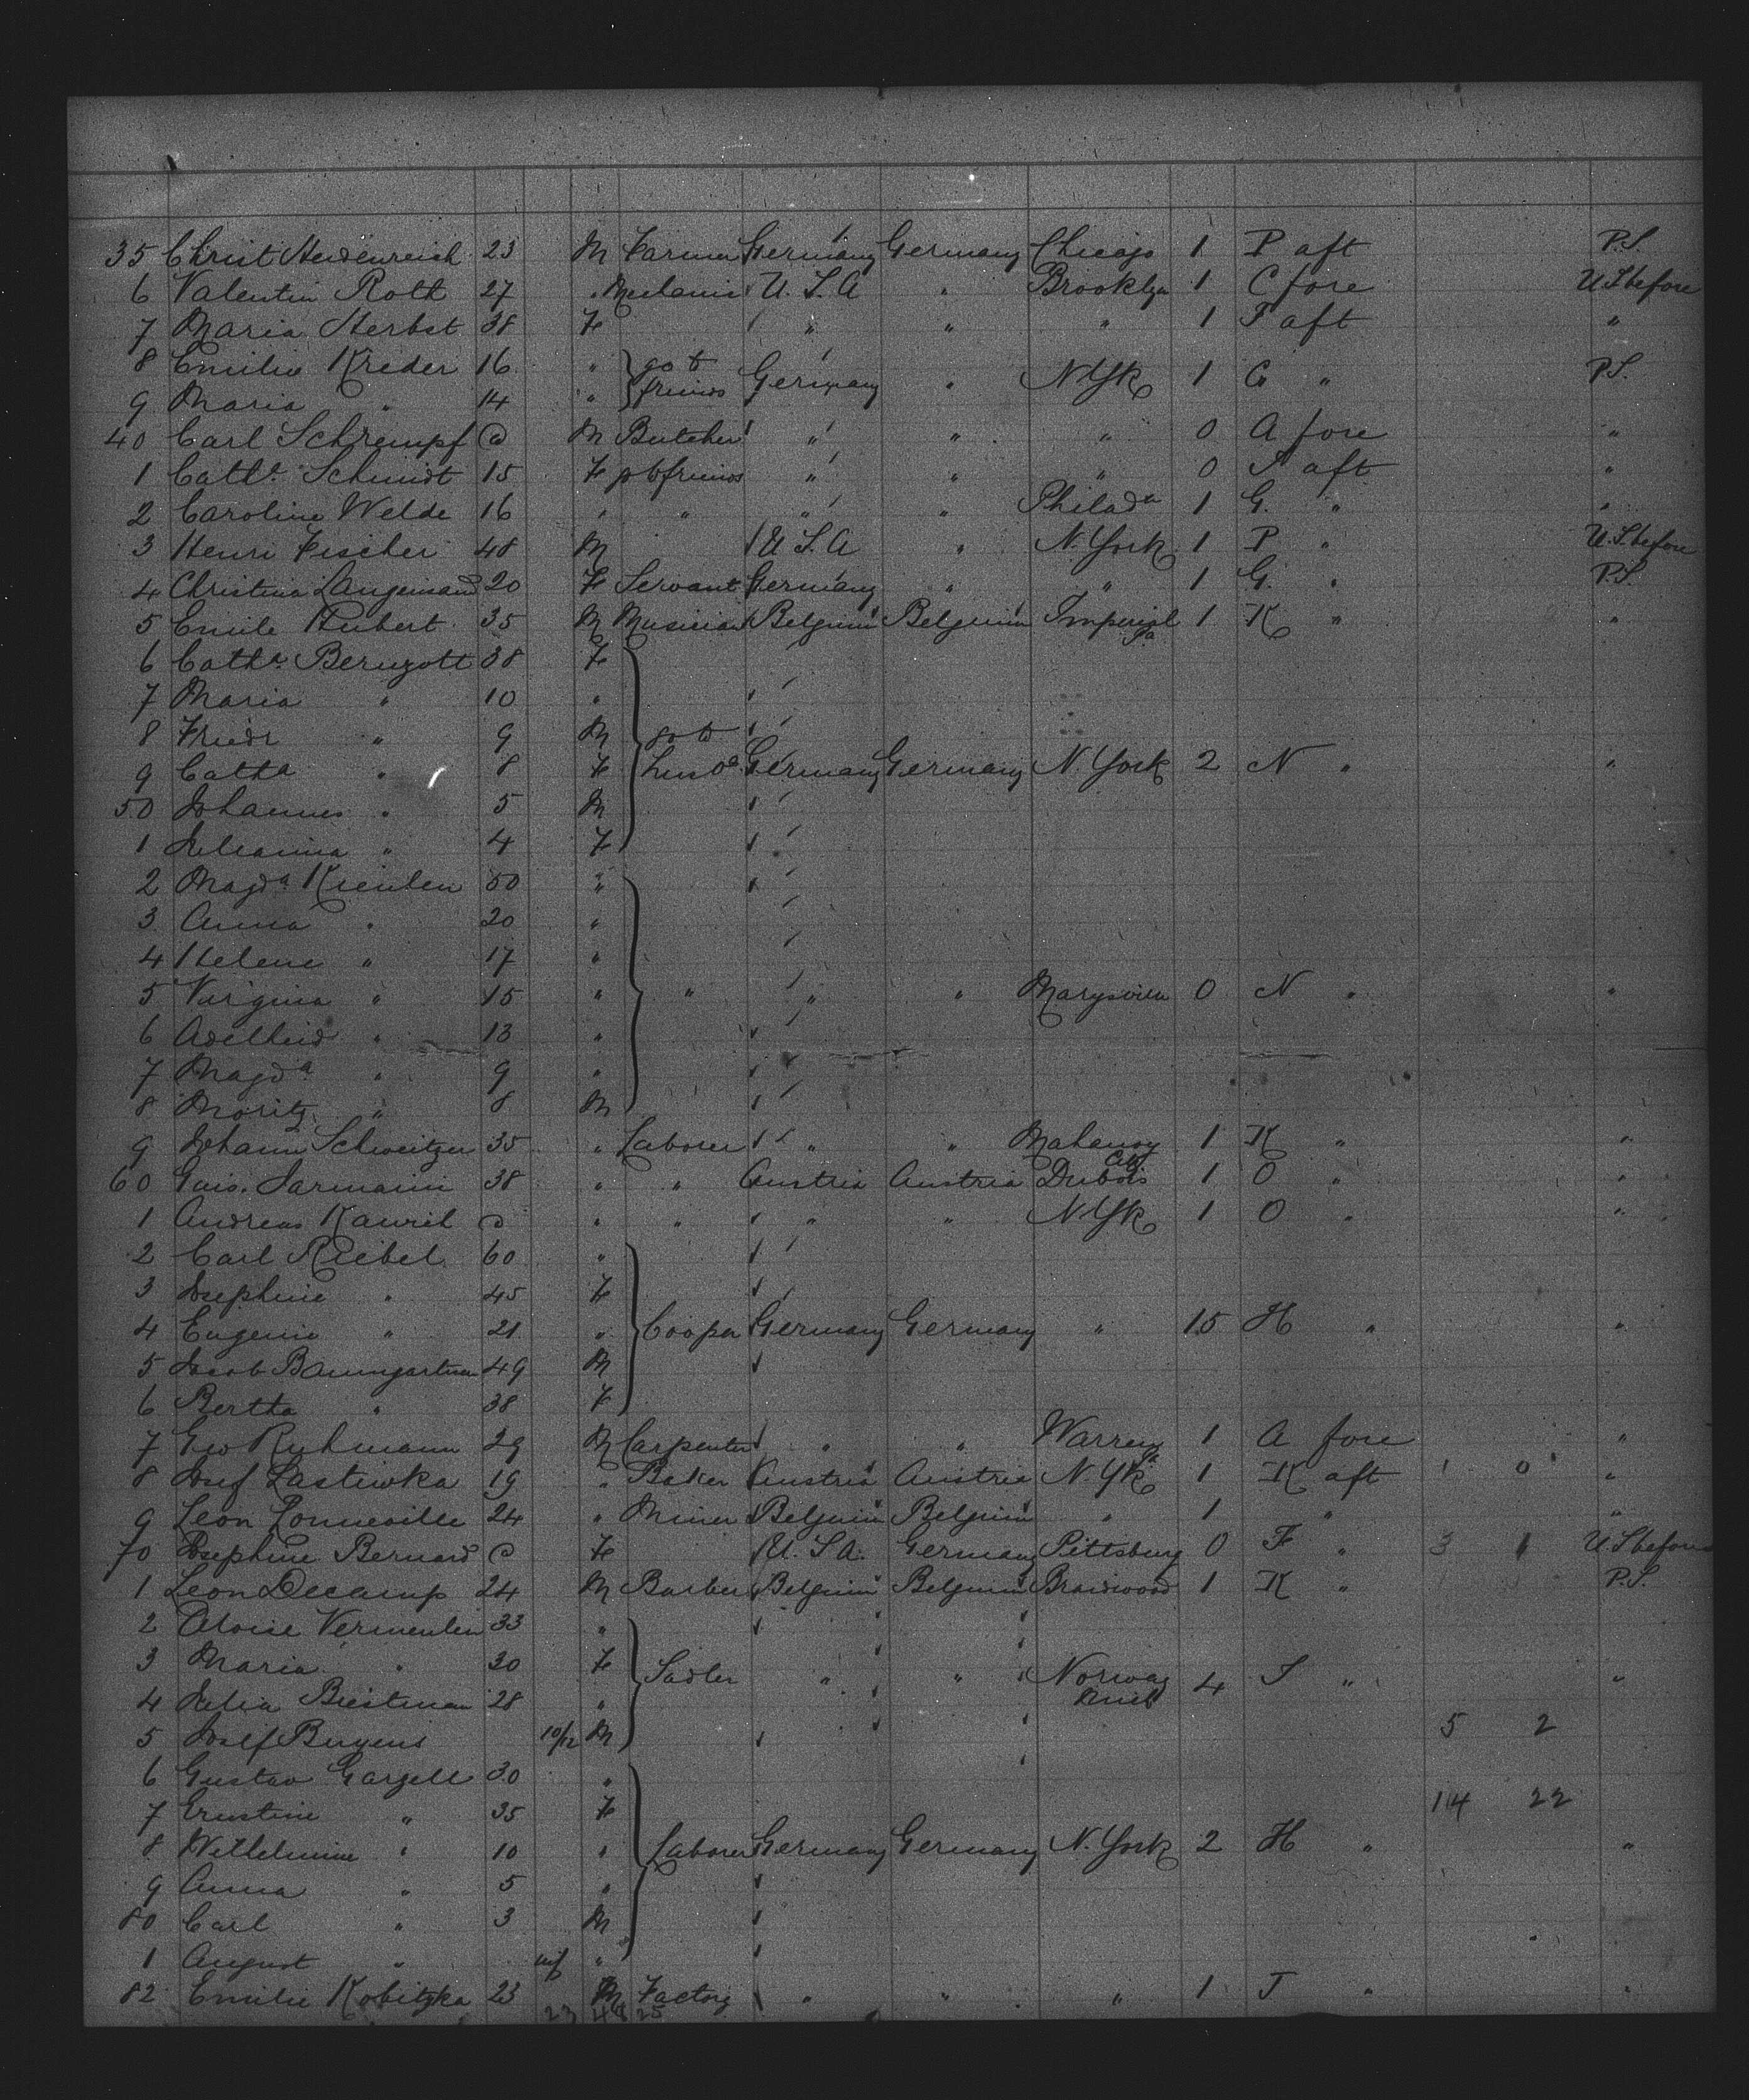 35 Christ Heidenreich 23 M Farmer Germany Germany Chicago 1 P aft P.S.
6 Valentin Roth 27 " Mechanic U.S.A " Brooklyn 1 C fore U.S before
7 Maria Herbst 38 F " " " 1 F aft "
8 Emilie Kreder 16 " go to
9 Maria " 14 " friends Germany " N Yk 1 G " P.S.
40 Carl Schrempf M Butcher " " " 0 A fore "
1 Cathe Schmidt 15 F go to friends " " " 0 S aft "
2 Caroline Welde 16 " " " " Philada 1 G. " "
3 Henri Fischer 48 M U.S.A " N. York 1 P " U.S. before
4 Christina Langeniand 20 F Servant Germany " " 1 G. " P.S.
5 Emile Hubert 35 M Musician Belgium Belgium Imperial Pa 1 K " "
6 Cathe. Bernzott 38 F
7 Maria " 10 "
8 Friedr " 9 M go to
9 Catha " 8 F husbd Germany Germany N. York 2 N " "
50 Johannes " 5 M
1 Juliana " 4 F
2 Magda Kreuten 50 "
3 Anna " 20 "
4 Helene " 17 "
5 Virginia " 15 " " " " Marysville 0 N " "
6 Adelheid " 13 "
7 Magda " 9 "
8 Moritz " 8 M
9 Johann Schweitzer 35 " Laborer " " Mahanoy City 1 K " "
60 Sarmanni 38 " " Austria Austria Dubois 1 O " "
1 Andreas Kawich " " " " N Yk 1 O " "
2 Carl Riebel 60 "
3 Josephine " 45 F
4 Eugenie " 21 " Cooper Germany Germany " 15 H " "
5 Jacob Baumgartner 49 M
6 Bertha " 38 F
7 Geo Ruhmann 29 M Carpenter " " Warren Pa 1 A fore "
8 Josef Lastiwka 19 " Baker Austria Austria N. Yk 1 K aft 1 0 "
9 Leon Lonneville 24 " Miner Belgium Belgium " 1 " "
70 Josephine Bernard F U.S.A. Germany Pittsburg 0 F " 3 1 U.S before
1 Leon Decamp 24 M Barber Belgium Belgium Braidwood 1 K " P.S.
2 Aloise Vermeulen 33 "
3 Maria " 30 F Sadler " " Norway Mich 4 S " "
4 Julia Biestman 28 "
5 Buyens 10/12 M 5 2
6 Gustav Gargell 30 "
7 Ernstine " 35 F 14 22
8 Wilhelmine " 10 " Laborer Germany Germany N. York 2 H " "
9 Anna " 5 "
80 Carl " 3 M
1 August " inf "
82 Emilie Kobitzka 23 M Factory " " " 1 J " "
23 48 25